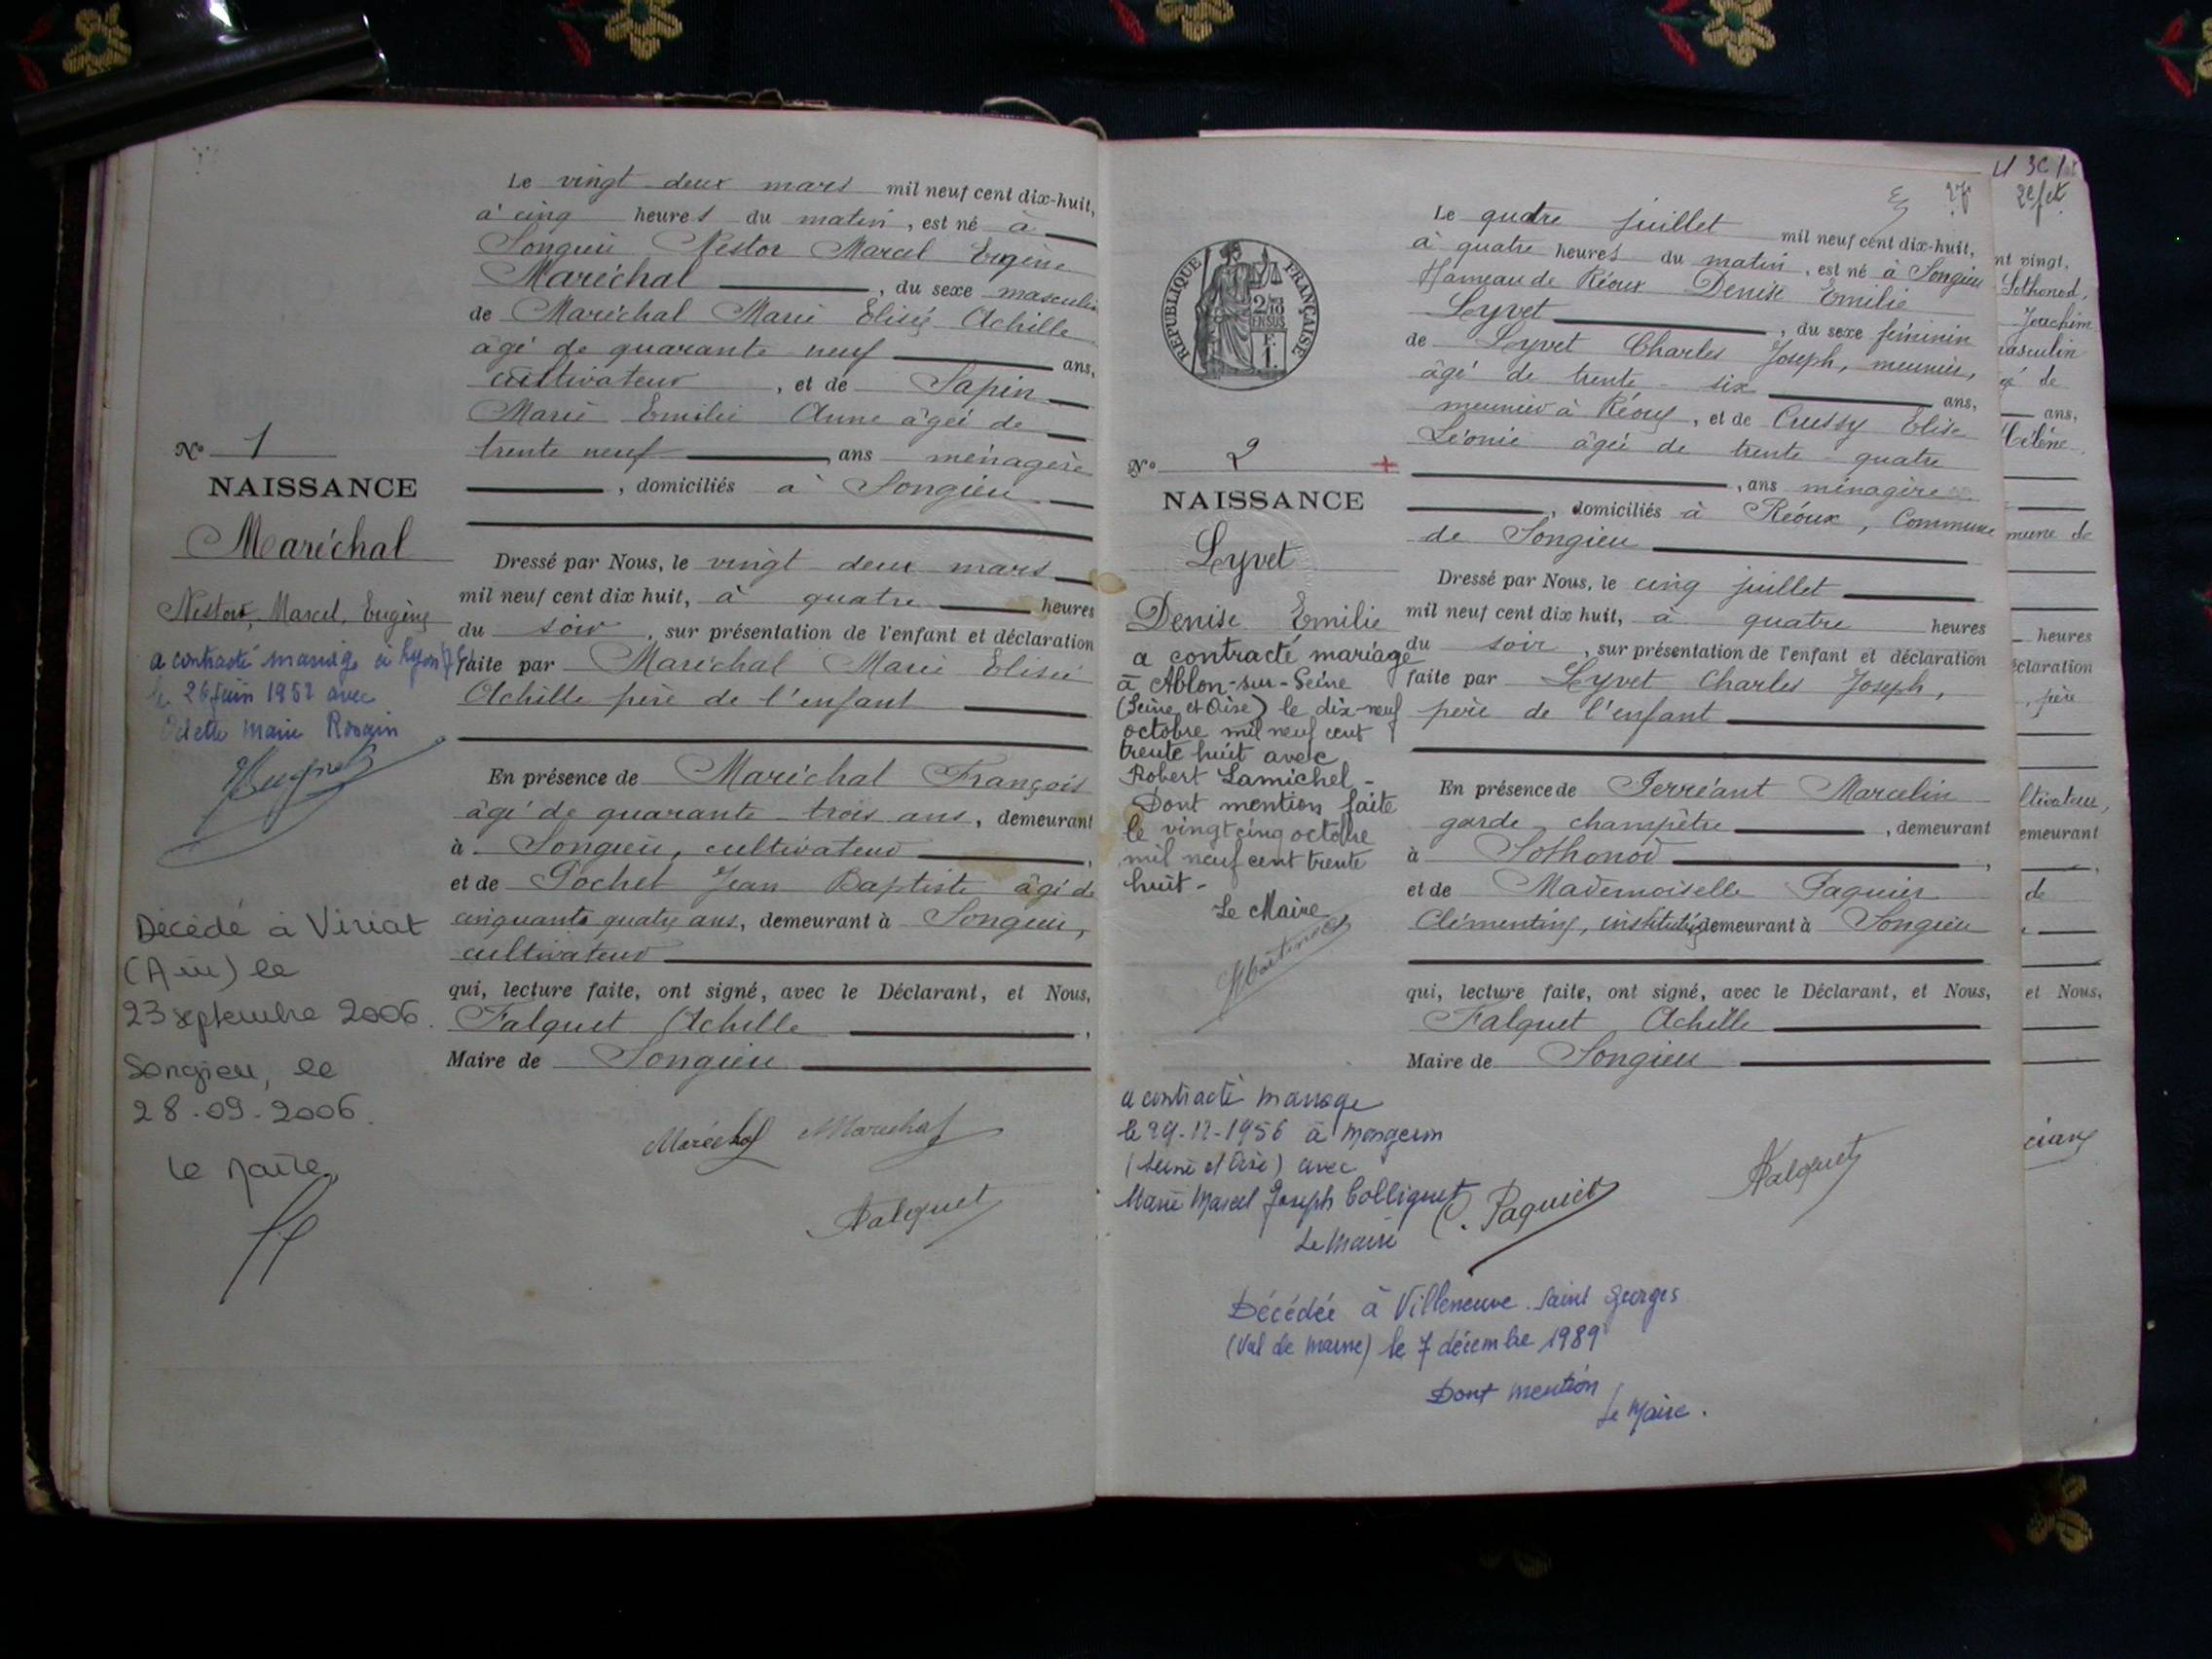 Le vingt deux mars mil neuf cent dix-huit,
à cinq heures du matin, est né à
Songieu Nestor Marcel Eugène
Maréchal, du sexe masculin
de Maréchal Marie Elisée Achille
âgé de quarante neuf ans,
cultivateur, et de Sapin
Marie Emilie Anne âgée de
trente neuf ans ménagère
, domiciliés à Songieu
Nº 1
NAISSANCE
Maréchal
Nestor, Marcel, Eugène
a contracté mariage à Lyon
le 26 juin 1952 avec
Odette Marie
Décédé à Viriat
(Ain) le
23 septembre 2006.
Songieu, le
28.09.2006.
Le Maire,
Dressé par Nous, le vingt deux mars
mil neuf cent dix huit, à quatre heures
du soir, sur présentation de l'enfant et déclaration
faite par Maréchal Marie Elisée
Achille père de l'enfant
En présence de Maréchal François
âgé de quarante-trois ans, demeurant
à Songieu, cultivateur,
et de Pochet Jean Baptiste âgé de
cinquante quatre ans, demeurant à Songieu,
cultivateur
qui, lecture faite, ont signé, avec le Déclarant, et Nous,
Falquet Achille,
Maire de Songieu
Maréchal Marechal
Falquet
REPUBLIQUE FRANÇAISE
2/10
EN SUS
F.
1.
Nº 2 +
NAISSANCE
Lyvet
Denise Emilie
a contracté mariage
à Ablon-sur-Seine
(Seine et Oise) le dix-neuf
octobre mil neuf cent
trente huit avec
Robert Lamichel-
Dont mention faite
le vingt cinq octobre
mil neuf cent trente
huit-
Le Maire
a contracté mariage
le 29-12-1956 à Mongeron
(Seine et Oise) avec
Marie Marcel Joseph Colliguet
Le Maire
Le quatre juillet mil neuf cent dix-huit,
à quatre heures du matin, est né à Songieu
Hameau de Réoux Denise Emilie
Lyvet, du sexe féminin
de Lyvet Charles Joseph, meunier,
âgé de trente-six ans,
meunier à Réoux, et de Crussy Elise
Léonie âgée de trente-quatre
, ans ménagère
, domiciliés à Réoux, Commune
de Songieu
Dressé par Nous, le cinq juillet
mil neuf cent dix huit, à quatre heures
du soir, sur présentation de l'enfant et déclaration
faite par Lyvet Charles Joseph,
père de l'enfant
En présence de Ferréant Marcelin
garde champêtre, demeurant
à Sothonod,
et de Mademoiselle Paquier
Clémentine, demeurant à Songieu
qui, lecture faite, ont signé, avec le Déclarant, et Nous,
Falquet Achille
Maire de Songieu
C. Paquiet
Falquet
Décédée à Villeneuve Saint Georges
(Val de Marne) le 7 décembre 1989
Dont mention
Le Maire.
nt vingt,
Sothonod,
Joachim
masculin
gé de
ans,
Célène
mune de
heures
éclaration
, père
ltivateur,
emeurant
de
et Nous,